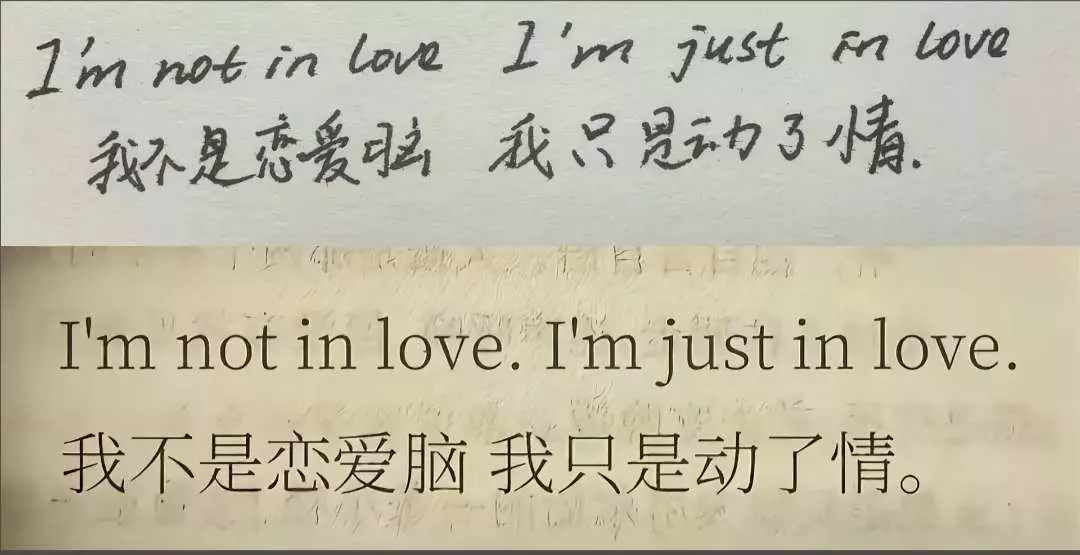 I'm not in love I'm just in love
我不是恋爱脑 我只是动了情.
I'm not in love. I'm just in love.
我不是恋爱脑 我只是动了情。